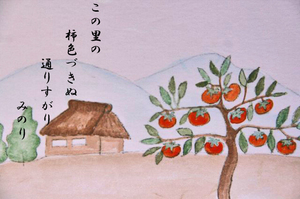 この里の
柿色づきぬ
通りすがり
みのり